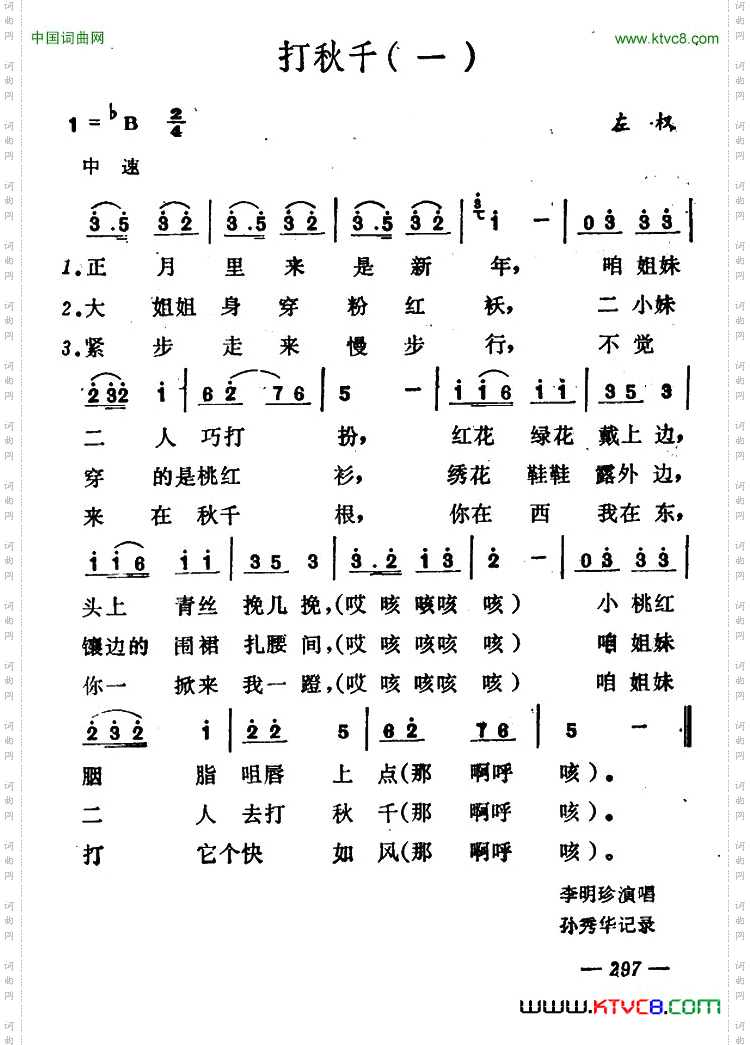 中国词曲网
www.ktvc8.com
打秋千(一)
1=♭B 2/4
左 权
中速
3.5 3 2 | 3.5 3 2 | 3.5 3 2 | 3 1 — | 0 3 3 3 |
1.正 月 里 来 是 新 年， 咱 姐 妹
2.大 姐姐 身 穿 粉 红 袄， 二 小妹
3.紧 步 走 来 慢 步 行， 不 觉
2 3 2 1 | 6 2 7 6 | 5 — | 1 1 6 1 1 | 3 5 3 |
二 人 巧打 扮， 红花 绿花 戴上 边，
穿 的是桃红 衫， 绣花 鞋鞋 露外 边，
来 在 秋千 根， 你在 西 我在 东，
1 1 6 1 1 | 3 5 3 | 3.2 1 3 | 2 — | 0 3 3 3 |
头上 青丝 挽几 挽，(哎 咳 咳咳 咳) 小 桃红
镶边的 围裙 扎腰 间，(哎 咳 咳咳 咳) 咱 姐妹
你一 掀来 我一 蹬，(哎 咳 咳咳 咳) 咱 姐妹
2 3 2 1 | 2 2 5 | 6 2 7 6 | 5 — ‖
胭 脂 咀唇 上 点(那 啊呼 咳)。
二 人 去打 秋 千(那 啊呼 咳)。
打 它个快 如 风(那 啊呼 咳)。
李明珍演唱
孙秀华记录
— 297 —
www.KTVC8.com